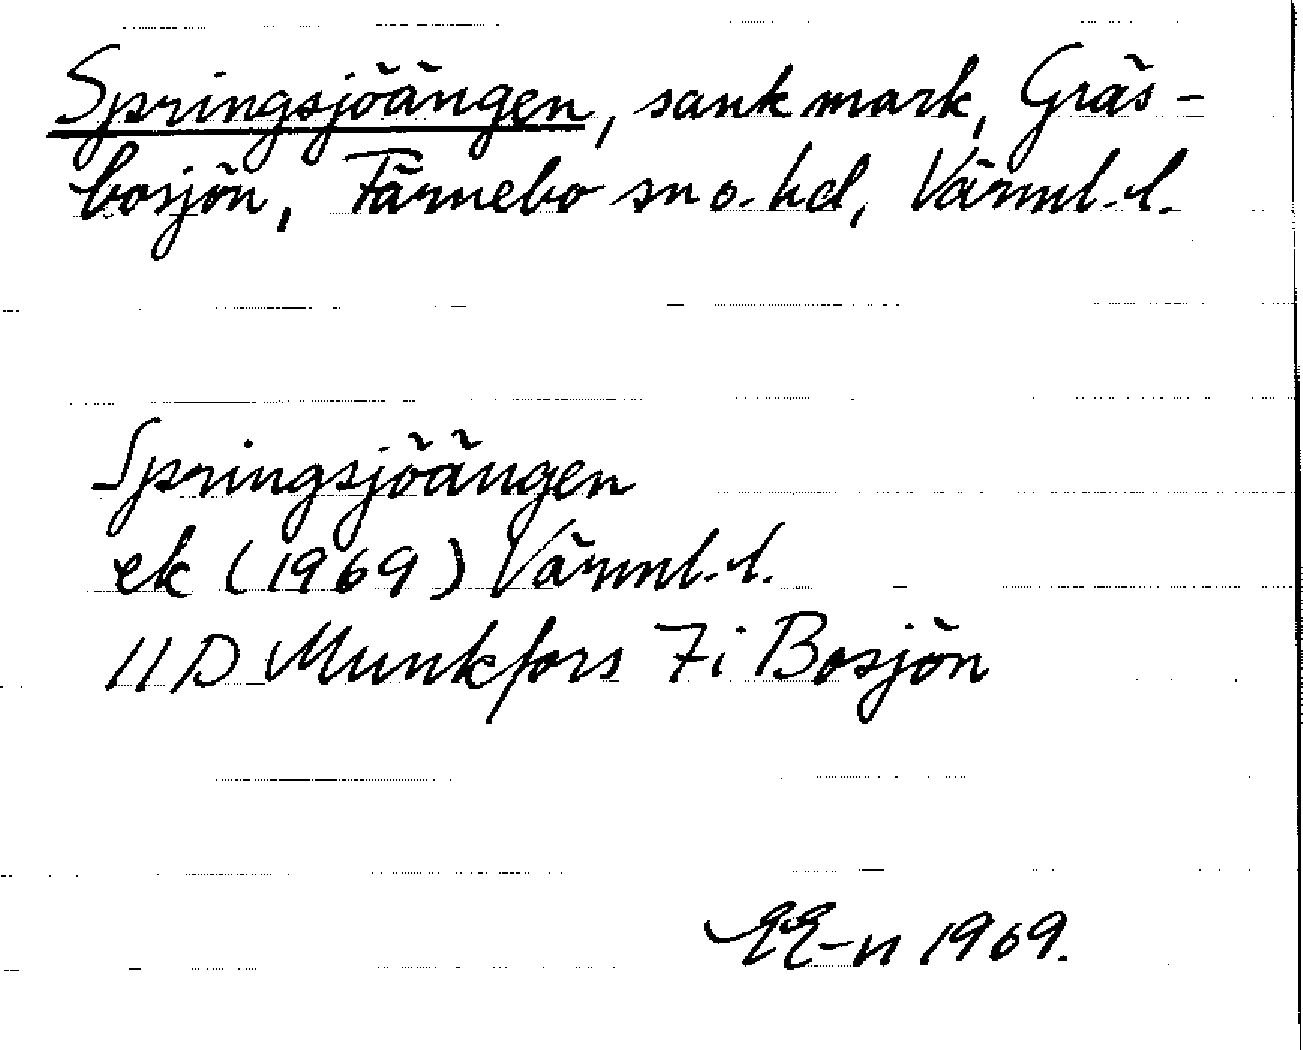 Springsjöängen, sank mark, Gräs-
bosjön, Färnebo sn o. hd, Värml. l.
Springsjöängen
ek (1969) Värml. l.
11D Munkfors 7i Bosjön
EE-n 1969.